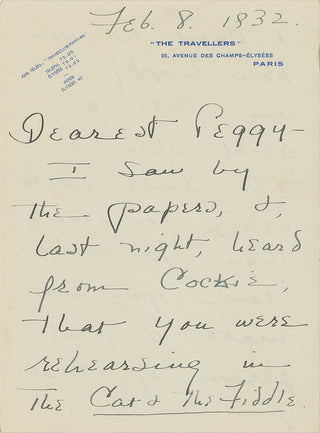 Feb. 8. 1932.
"THE TRAVELLERS"
25, AVENUE DES CHAMPS-ÉLYSÉES
PARIS
ADR. TÉLÉG.: "TRAVCLUB-PARIS-86"
TÉLÉPH.
ÉLYSÉES
Dearest Peggy—
I saw by
the papers, &,
last night, heard
from Cockie,
that you were
rehearsing in
The Cat & The Fiddle.